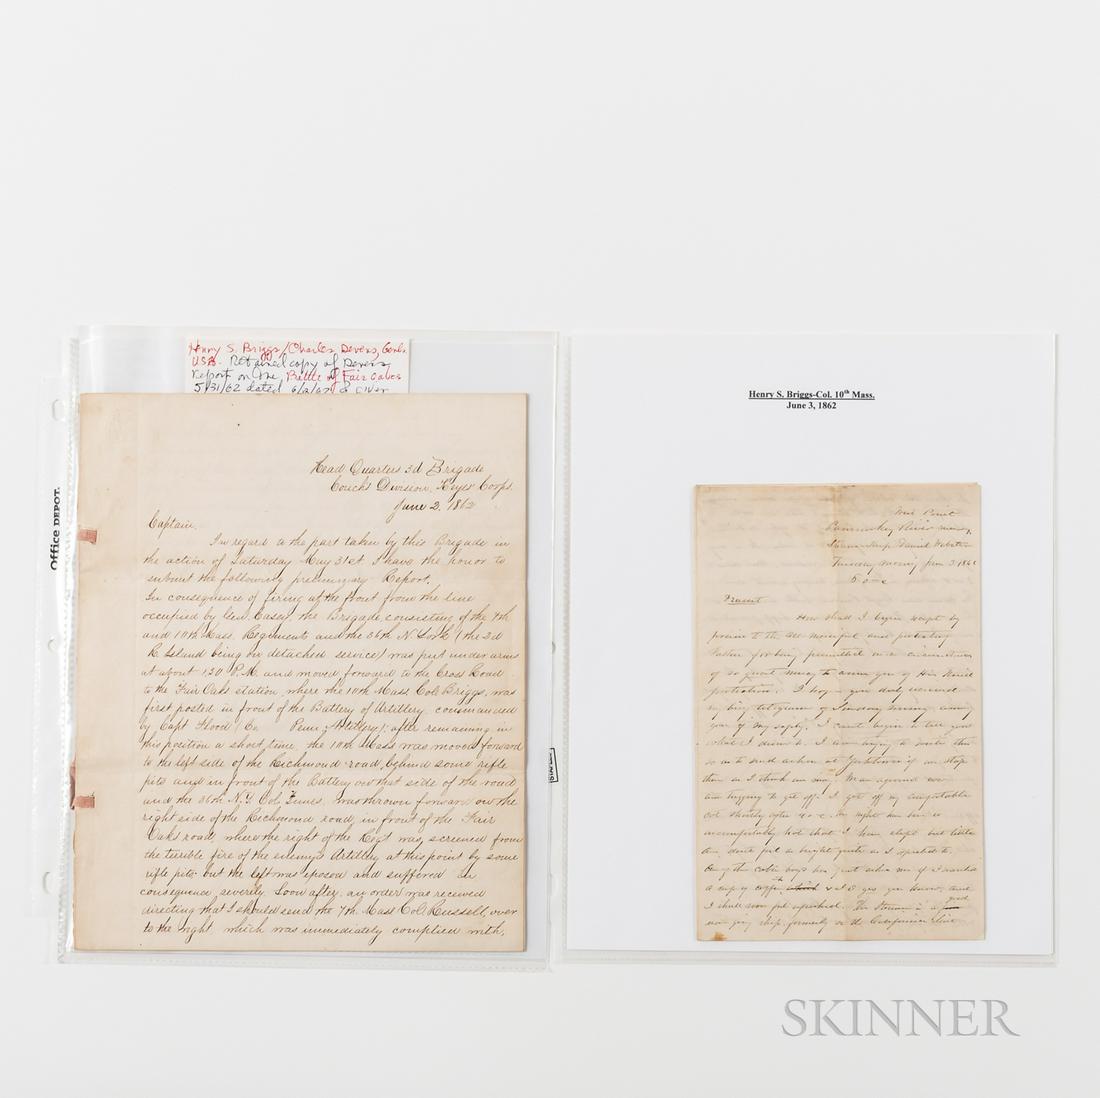 Henry S. Briggs/Charles Devens, Genls.
USA. Retained copy of Devens
report on the Battle of Fair Oaks
5/31/62 dated 6/2/62 & over
Office DEPOT.
Head Quarters 3d Brigade
Couchs Division, Keyes Corps.
June 2. 1862
Captain.
In regard to the part taken by this Brigade in
the action of Saturday May 31st I have the honor to
submit the following preliminary Report.
In consequence of firing at the front from the line
occupied by Gen. Casey, the Brigade, consisting of the 7th
and 10th Mass. Regiments and the 36th N. York (the 2d
R. Island being on detached service) was put under arms
at about 1.30 P.M. and moved forward to the Cross Road
to the Fair Oaks station, where the 10th Mass Col Briggs, was
first posted in front of the Battery of Artillery, commanded
by Capt Flood (Co Penn. Artillery); after remaining in
this position a short time, the 10th Mass was moved forward
to the left side of the Richmond road, behind some rifle
pits and in front of the Battery on that side of the road
and the 36th N.Y. Col. Innes, was thrown forward on the
right side of the Richmond road, in front of the Fair
Oaks road, where the right of the Regt was screened from
the terrible fire of the enemy's Artillery at this point by some
rifle pits but the left was exposed and suffered in
consequence severely. Soon after, an order was received
directing that I should send the 7th Mass Col. Russell, over
to the right which was immediately complied with,
STAPLES
Henry S. Briggs-Col. 10th Mass.
June 3, 1862
Pamunkey River
Steam-ship Daniel Webster
Tuesday morning June 3 1862
5 o'c
How shall I begin except by
praise to the all merciful and protecting
Father for being permitted in circumstances
of so great mercy to assure you of His
protection. I hope you duly received
my telegram of Sunday evening
you of my safety. I can't begin to tell you
what I desire to. I am trying to write this
so as to send ashore at Yorktown if we stop
there as I think we may.
are trying to get off. I got off my comfortable
cot shortly after 4 o'c. The night has been so
uncomfortably hot that I have slept but little
don't feel as bright quite as I expected to.
One of the cabin boys has just asked me if I wanted
a cup of coffee & I did yes you know, and
I shall soon feel refreshed. The steamer is a good
sea going ship formerly on the California line
SKINNER